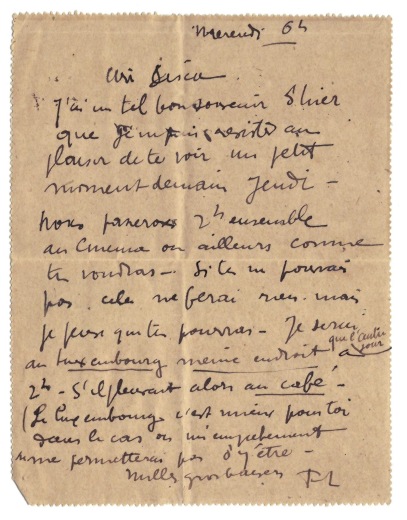 Mercredi 6h
J'ai un tel bon souvenir d'hier
que je ne puis résister au
plaisir de te voir un petit
moment demain Jeudi -
Nous passerons 2h ensemble
au cinema ou ailleurs comme
tu voudras - Si tu ne pouvais
pas cela ne ferai rien mais
je pense que tu pourras - Je serai
au Luxembourg meme endroit que l'autre jour a
2h - S'il pleuvait alors au café -
(Le Luxembourg c'est mieux pour toi
dans le cas ou un empechement
me permetterai pas d'y être -
Milles gros baisers